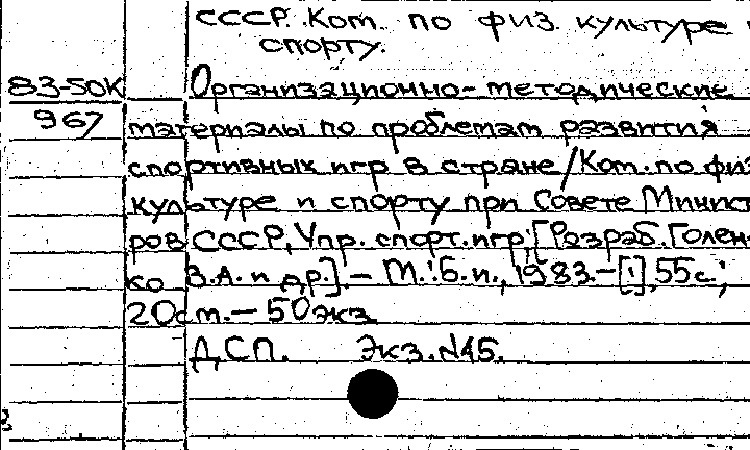 СССР. Ком. по физ. культуре
спорту.
83-50К Организационно-методические
967 материалы по проблемам развития
спортивных игр в стране/Ком.по физ
культуре и спорту при Совете Минист
ров СССР, Упр. спорт.игр; [Разраб.Голен-
ко В.А. и др.].- М.:Б.и., 1983.-[1],55с.;
20см.- 50экз
ДСП. Экз.№45.